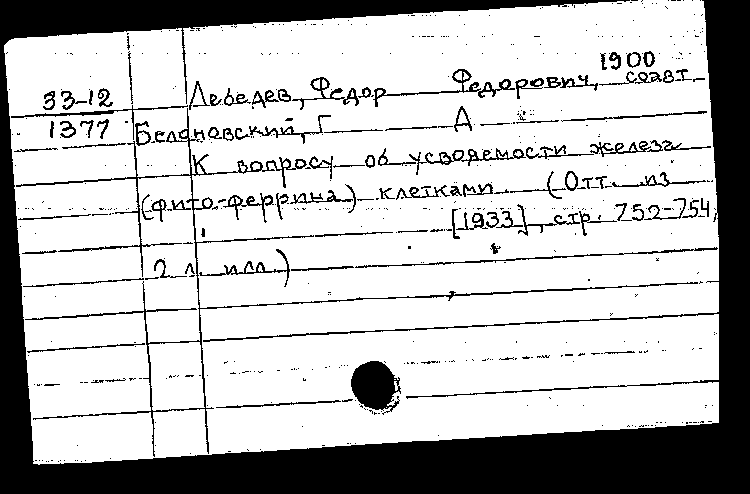 1900
33-12 Лебедев, Федор Федорович, соавт
1377 Белановский, Г А
К вопросу об усвояемости железа
(фито-феррина) клетками. (Отт. из
[1933], стр. 752-754,
2 л. илл.)